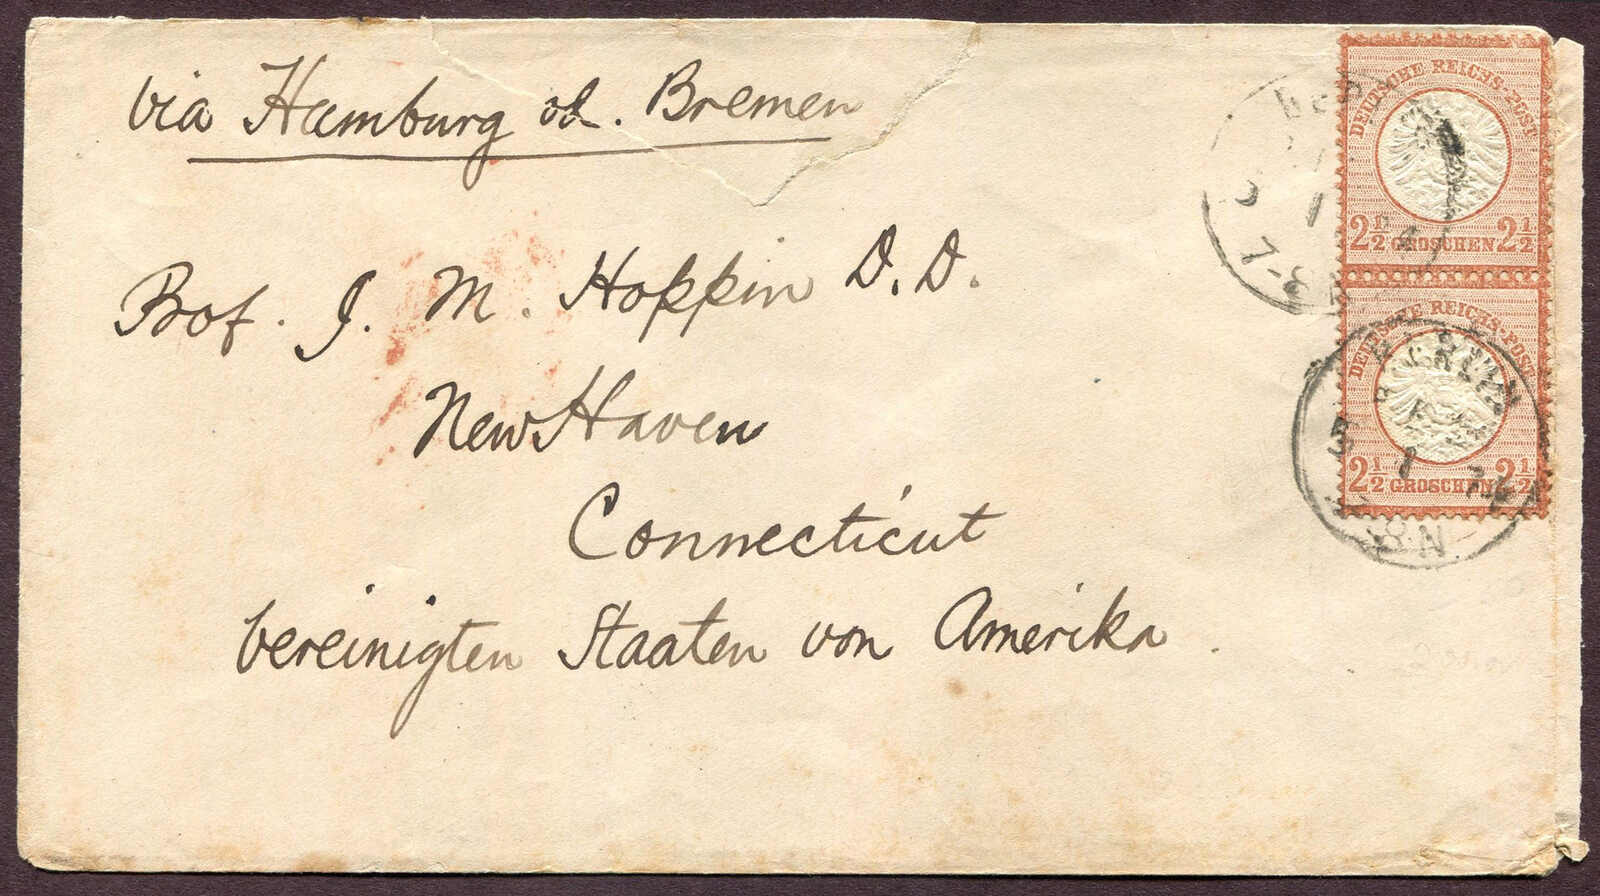 via Hamburg od. Bremen
Prof. J. M. Hoppin D. D.
New Haven
Connecticut
Vereinigten Staaten von Amerika.
DEUTSCHE REICHS-POST
2½ GROSCHEN 2½
7-8
DEUTSCHE REICHS-POST
2½ GROSCHEN 2½
BERLIN
7-8 N